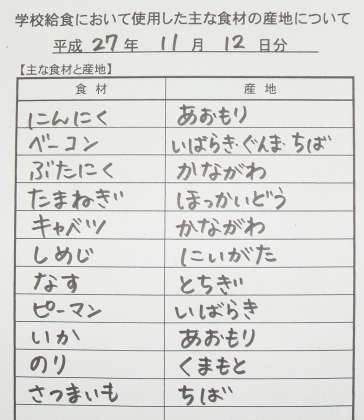 学校給食において使用した主な食材の産地について
平成 27 年 11 月 12 日分
【主な食材と産地】
食 材 産 地
にんにく あおもり
ベーコン いばらき・ぐんま・ちば
ぶたにく かながわ
たまねぎ ほっかいどう
キャベツ かながわ
しめじ にいがた
なす とちぎ
ピーマン いばらき
いか あおもり
のり くまもと
さつまいも ちば